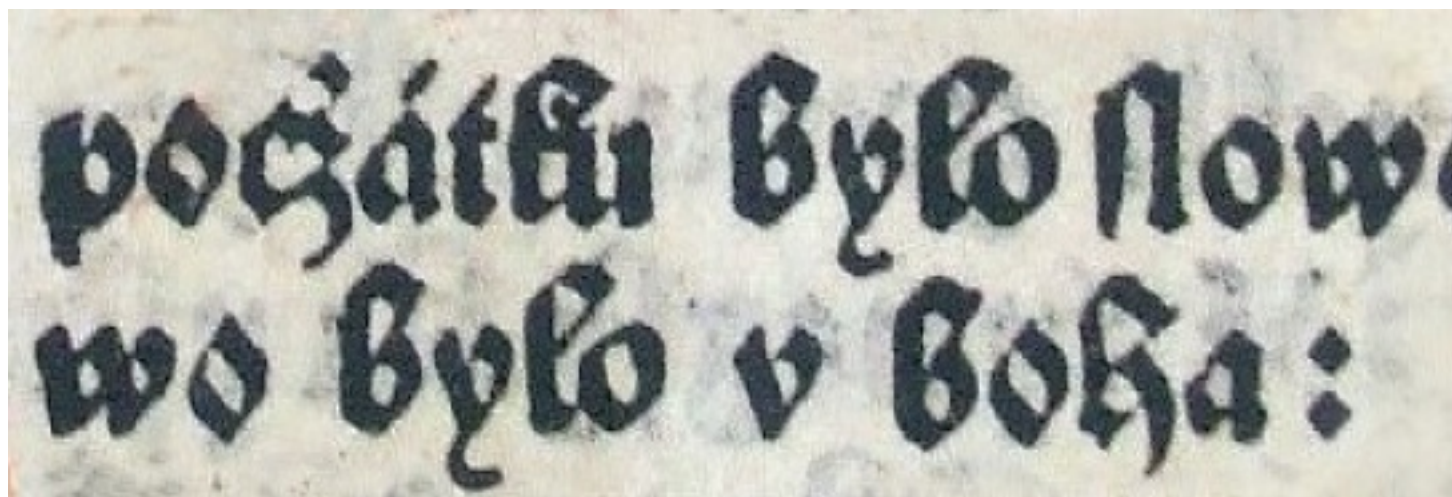 počátku bylo slow
wo bylo v boha: